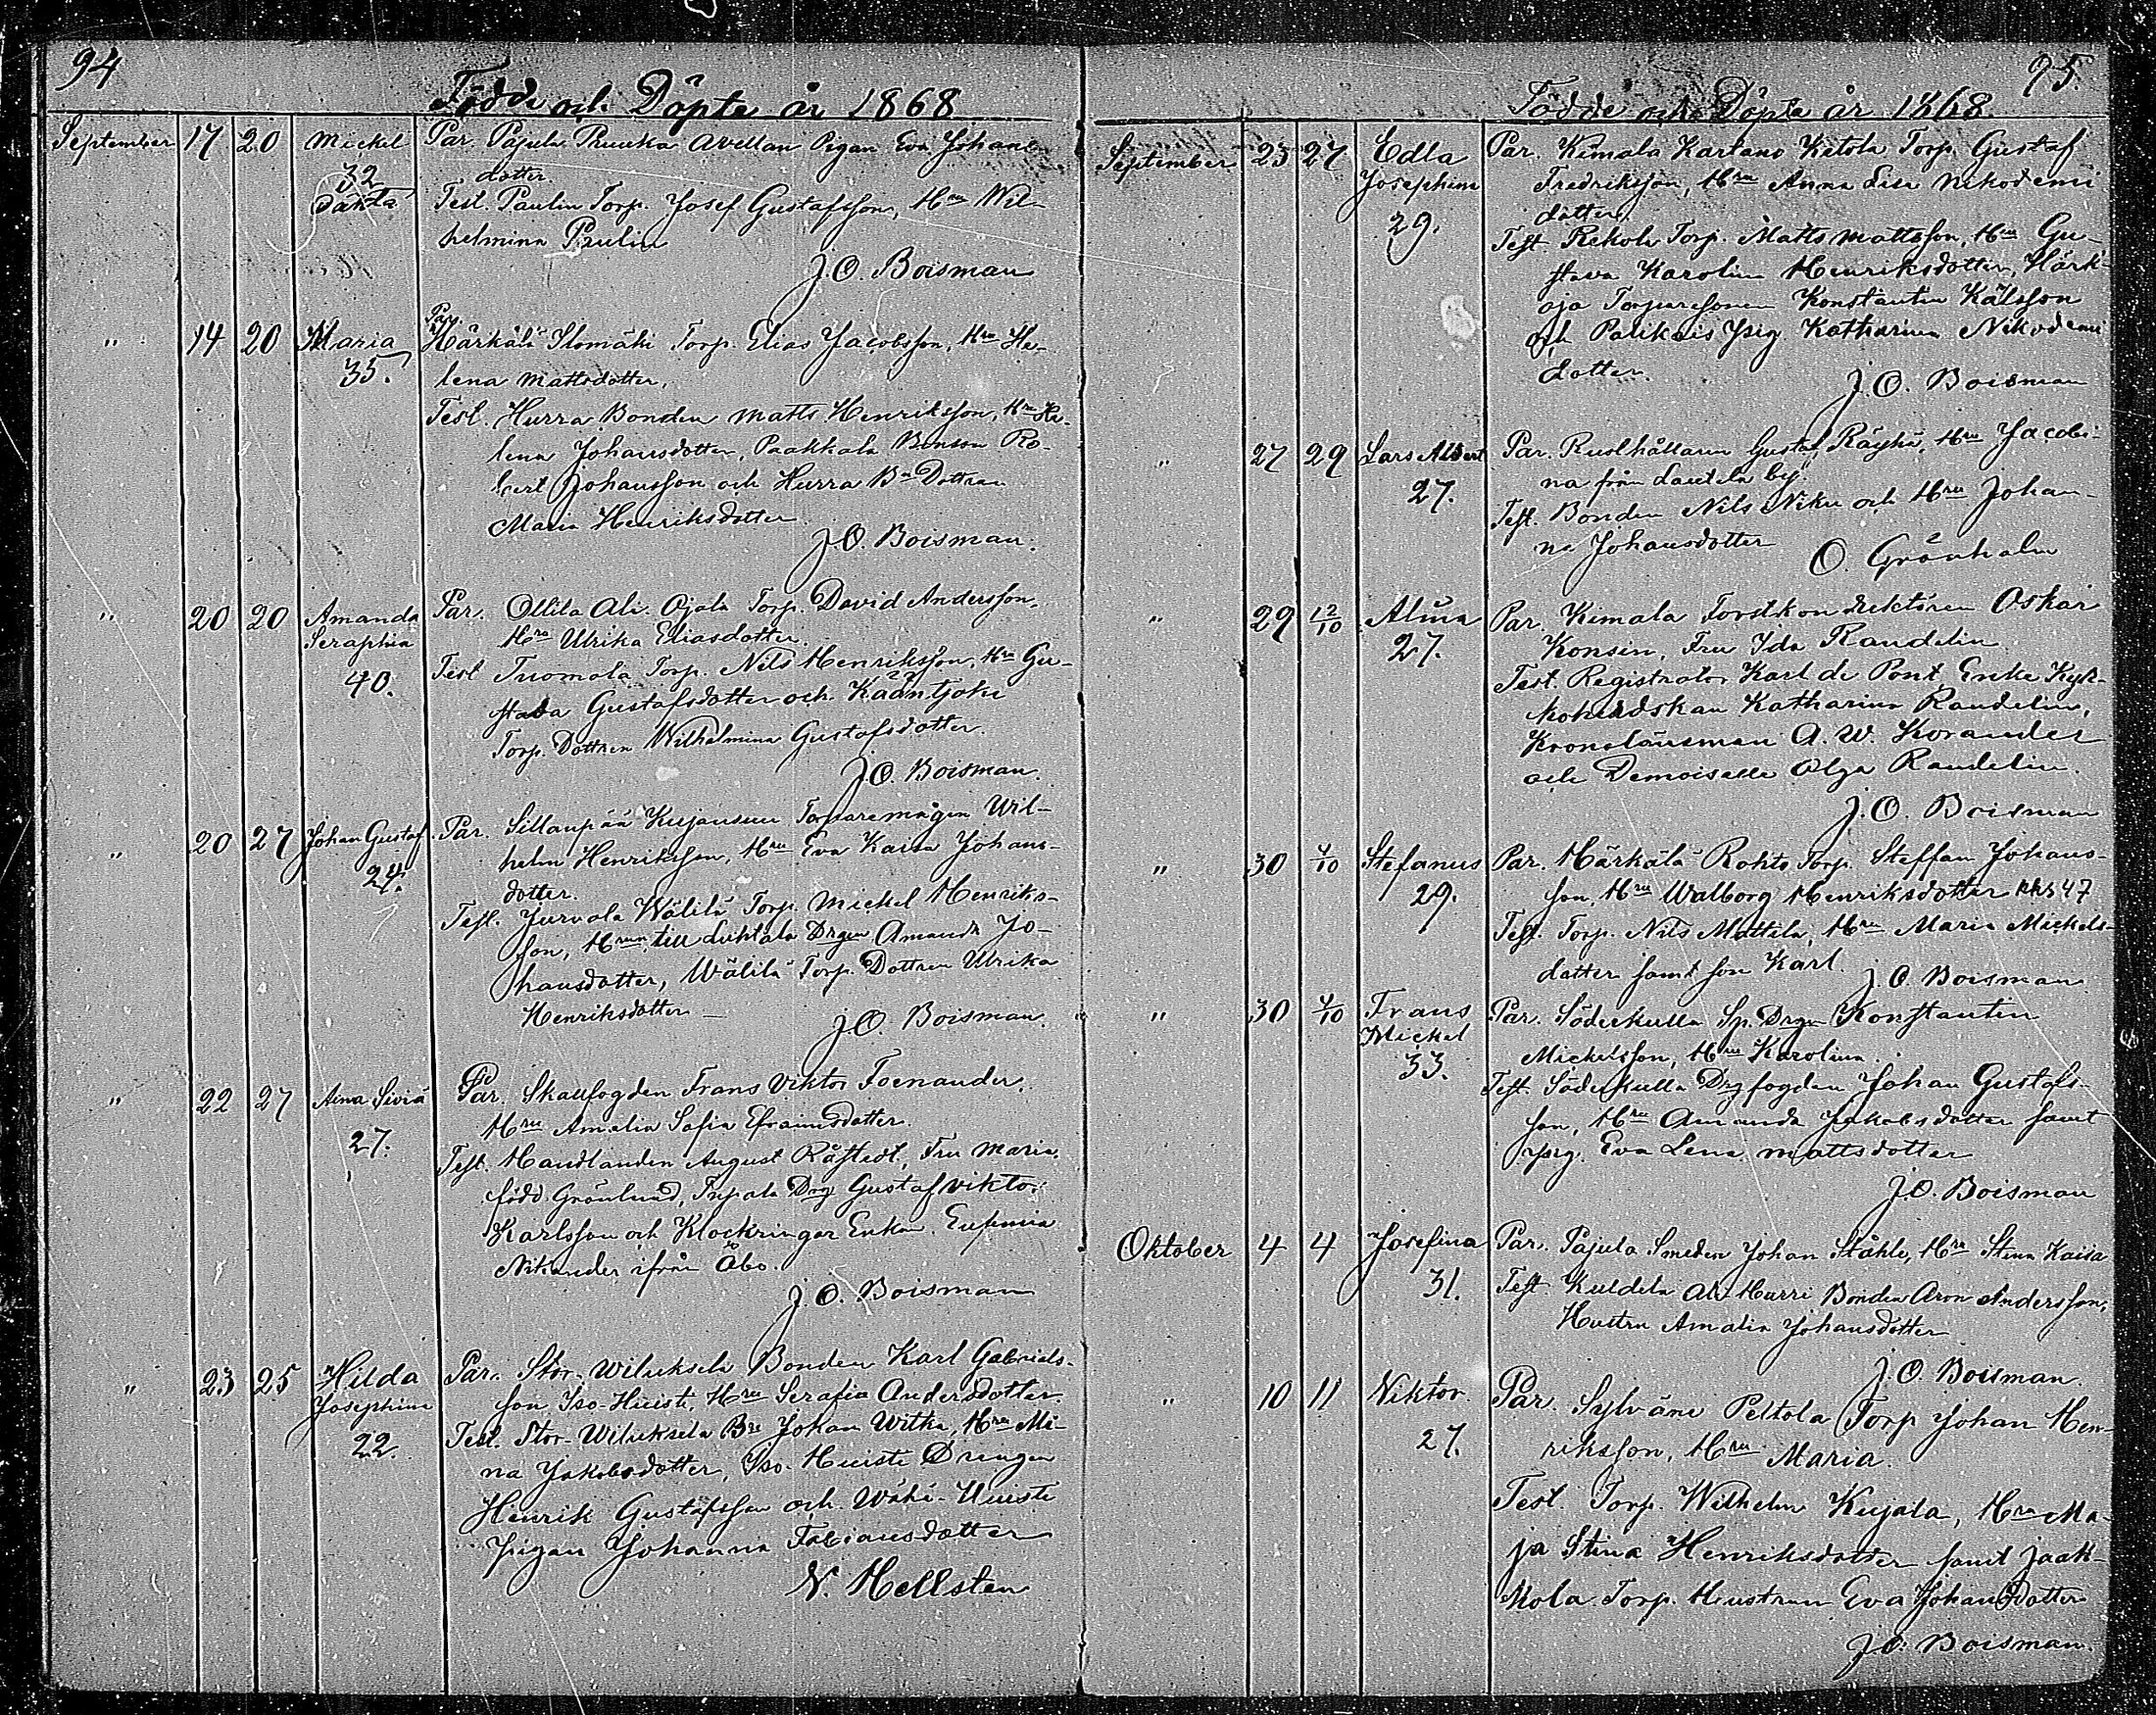 94
Födde och Döpte år 1868
September 17 20 Mickel Par. Pajula Ruuka Avellan Pigan Eva Johans-
dotter
32
oäkta
Test. Paulin Torp. Josef Gustafsson, Hru Wil-
helmina Paulin
J. O. Boisman
" 14 20 Maria Par. Härkälä Isomäki Torp. Elias Jacobsson, Hru He-
35. lena Mattsdotter,
Test. Hurra Bonden Matts Henriksson, Hru He-
lena Johansdotter, Paakkala Bonson Ro-
bert Johansson och Hurra Be Dottren
Maria Henriksdotter
J. O. Boisman.
" 20 20 Amanda Par. Ollila Ali Ojala Torp. David Andersson,
Seraphia Hru Ulrika Eliasdotter.
40. Test Tuomola Torp. Nils Henriksson, Hru Gu-
stava Gustafsdotter och Kaanıjoki
Torp. Dottren Wilhelmina Gustafsdotter.
J. O. Boisman.
" 20 27 Johan Gustaf Par. Sillanpää Kujansuu Torparemågen Wil-
24. helm Henriksson, Hru Eva Kaisa Johans-
dotter.
Test. Jurvala Wälilä Torp. Mickel Henriks-
son, Hrun till Luhtala Drgen Amanda Jo-
hansdotter, Wälilä Torp. Dottren Ulrika
Henriksdotter
J. O. Boisman.
" 22 27 Aina Siviä Par. Skallfogden Frans Viktor Foenander,
27. Hru Amalia Sofia Efraimsdotter.
Test. Handlanden August Råstedt, Fru Maria
född Grönlund, Drg Gustaf Viktor
Karlsson och Klockringar Enkan Eufemia
Nikander ifrån Åbo.
J. O. Boisman
" 23 25 Hilda Par. Stor-Wiluksela Bonden Karl Gabriels-
Josephina son Iso-Huiste, Hru Serafia Andersdotter.
22. Test. Stor-Wiluksela Be Johan Witka, Hru Mi-
na Jakobsdotter, Iso-Huiste Drengen
Henrik Gustafsson och Wähä-Huiste
pigan Johanna Fabiansdotter
N. Hellsten
95.
Födde och Döpte år 1868.
September 23 27 Edla Par. Kimala Kartano Ketola Torp. Gustaf
Josephina Fredriksson, Hru Anna Lisa Nikodemi
29. dotter.
Test. Rekola Torp. Matts Mattsson, Hru Gu-
stava Karolina Henriksdotter, Härk-
oja Torparesonen Konstantin Kålsson
och Pariksis Psig. Katharina Nikodemi
dotter.
J. O. Boisman
" 27 29 Lars Albert Par. Rusthållaren Gustaf Räyhä, Hru Jacobi-
27. na från Lautela by.
Test. Bonden Nils Niku och Hru Johan-
na Johansdotter
O. Grönholm
" 29 12/10 Alma Par. Kimala Forstkonduktören Oskar
27. Konsin, Fru Ida Randelin
Test. Registrator Karl de Pont, Enke Kyr-
koherdskan Katharina Randelin,
Kronolänsman A. W. Korander
och Demoiselle Olga Randelin.
J. O. Boisman
" 30 4/10 Stefanus Par. Härkälä Rohto Torp. Steffan Johans-
29. son, Hru Walborg Henriksdotter 47
Test. Torp. Nils Mattila, Hru Maria Mickels-
dotter samt son Karl.
J. O. Boisman
" 30 4/10 Frans Par. Söderkulla Sp. Drgn Konstantin
Mickel Mickelsson, Hru Karolina.
33. Test. Söderkulla Drgfogden Johan Gustafs-
son, Hru Amanda Jakobsdotter samt
psig. Eva Lena Mattsdotter
J. O. Boisman
Oktober 4 4 Josefina Par. Pajula Smeden Johan Ståhle, Hru Stina Kaisa
31. Test. Kuldela Ali Hurri Bonden Aron Andersson,
Hustru Amalia Johansdotter
J. O. Boisman.
" 10 11 Viktor Par. Sylväni Peltola Torp Johan Hen-
27. riksson, Hru Maria.
Test. Torp. Wilhelm Kujala, Hru Ma-
ja Stina Henriksdotter samt Jaak-
kola Torp. Hustrun Eva Johansdotter
J. O. Boisman.